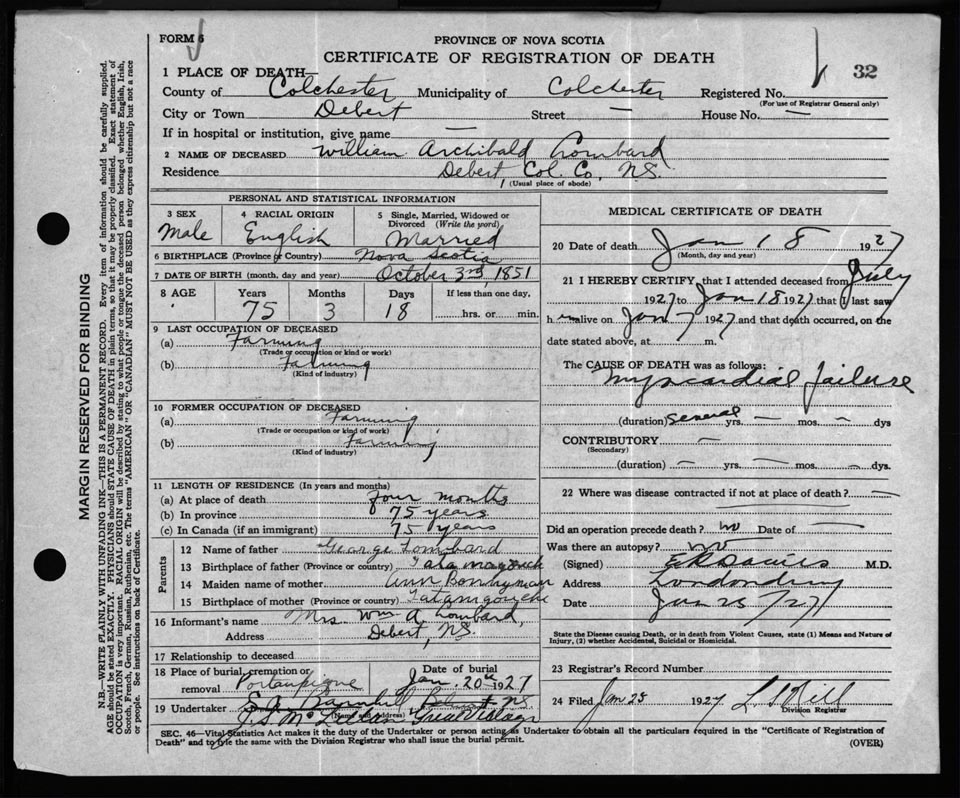 FORM 6
PROVINCE OF NOVA SCOTIA
CERTIFICATE OF REGISTRATION OF DEATH
32
1 PLACE OF DEATH—
County of Colchester Municipality of Colchester Registered No.
(For use of Registrar General only)
City or Town Debert Street — House No. —
If in hospital or institution, give name —
2 NAME OF DECEASED William Archibald
Residence Debert Col. Co, N.S.
(Usual place of abode)
PERSONAL AND STATISTICAL INFORMATION
3 SEX Male
4 RACIAL ORIGIN English
5 Single, Married, Widowed or Divorced (Write the word) Married
6 BIRTHPLACE (Province or Country) Nova Scotia
7 DATE OF BIRTH (month, day and year) October 3rd, 1851
8 AGE Years Months Days If less than one day,
75 3 18 hrs. or min.
9 LAST OCCUPATION OF DECEASED
(a) Farming
(Trade or occupation or kind or work)
(b) Farming
(Kind of industry)
10 FORMER OCCUPATION OF DECEASED
(a) Farming
(Trade or occupation or kind of work)
(b) Farming
(Kind of industry)
11 LENGTH OF RESIDENCE (In years and months)
(a) At place of death four months
(b) In province 75 years
(c) In Canada (if an immigrant) 75 years
Parents
12 Name of father George
13 Birthplace of father (Province or country)
14 Maiden name of mother Ann
15 Birthplace of mother (Province or country)
16 Informant's name Mrs Wm A.
Address Debert, N.S.
17 Relationship to deceased
18 Place of burial, cremation or removal Portaupique Date of burial Jan. 20th 1927
19 Undertaker
(Name and address)
Great Village
MEDICAL CERTIFICATE OF DEATH
20 Date of death Jan 18 1927
(Month, day and year)
21 I HEREBY CERTIFY that I attended deceased from July
1927 to Jan 18 1927 that I last saw
him alive on Jan 7 1927 and that death occurred, on the
date stated above, at m.
The CAUSE OF DEATH was as follows:
Myocardial failure
(duration) several yrs. — mos. — dys
CONTRIBUTORY —
(Secondary)
(duration) — yrs. — mos. — dys.
22 Where was disease contracted if not at place of death? —
Did an operation precede death? no Date of —
Was there an autopsy? no
(Signed) M.D.
Address Londonderry
Date Jan 25/27
State the Disease causing Death, or in death from Violent Causes, state (1) Means and Nature of
Injury, (2) whether Accidental, Suicidal or Homicidal.
23 Registrar's Record Number
24 Filed Jan 25 1927
Division Registrar
SEC. 46—Vital Statistics Act makes it the duty of the Undertaker or person acting as Undertaker to obtain all the particulars required in the "Certificate of Registration of
Death" and to file the same with the Division Registrar who shall issue the burial permit.
(OVER)
MARGIN RESERVED FOR BINDING
N.B.—WRITE PLAINLY WITH UNFADING INK—THIS IS A PERMANENT RECORD. Every item of information should be carefully supplied.
AGE should be stated EXACTLY. PHYSICIANS should STATE CAUSE OF DEATH in plain terms, so that it may be properly classified. Exact statement of
OCCUPATION is very important. RACIAL ORIGIN will be described by stating to what people or tongue the deceased person belonged whether English, Irish,
Scotch, French, German, Russian, Ruthenian, etc. The terms "AMERICAN" OR "CANADIAN" MUST NOT BE USED as they express citizenship but not a race
or people. See instructions on back of Certificate.